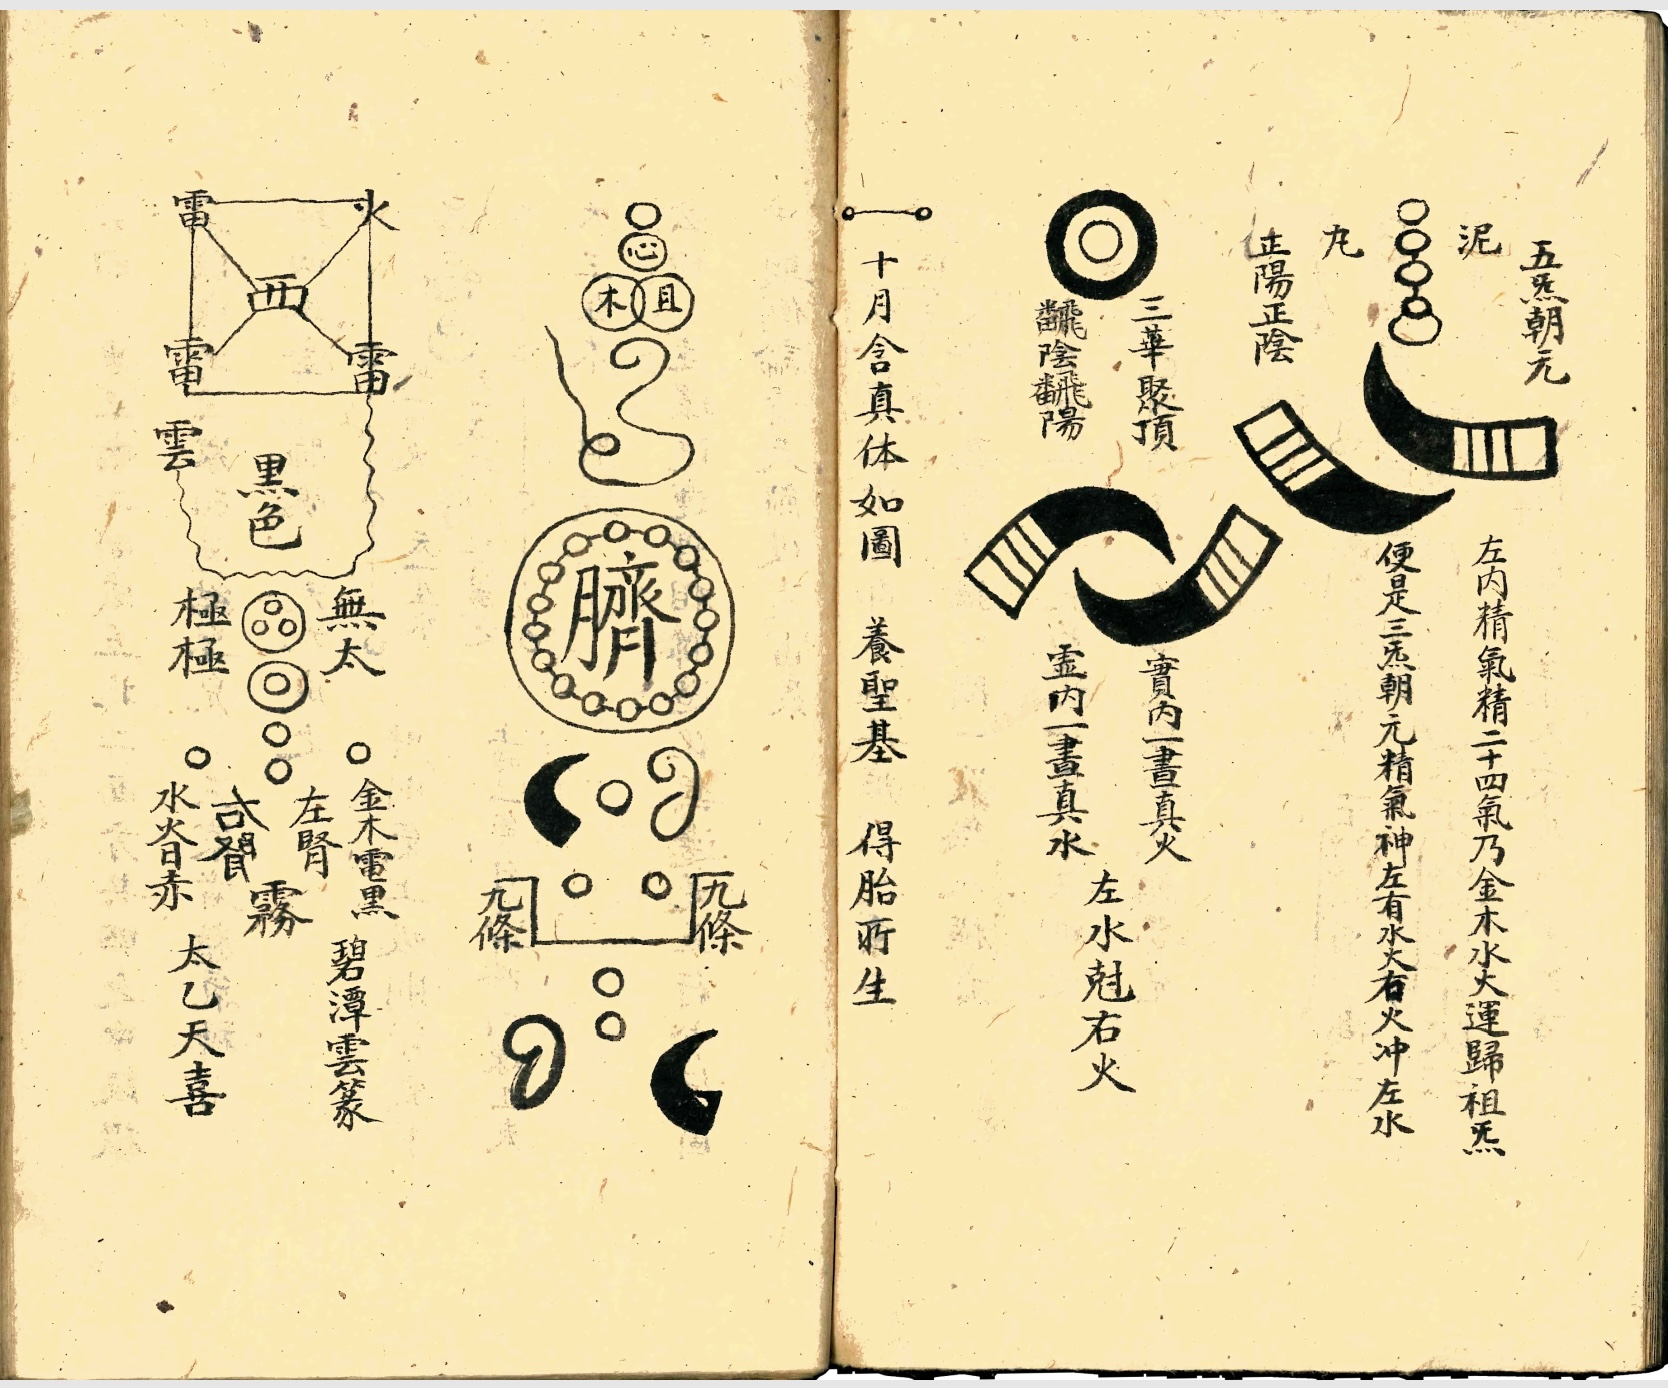 五炁朝元
泥
丸
正陽正陰
左内精氣精二十四氣乃金木水火運歸祖炁
便是三炁朝元精氣神左有水火右火冲左水
三華聚頂
飜陰飜陽
實内一畫真火
霊内一畫真水
左水尅右火
十月含真体如圖 養聖基 得胎所生
心
木 且
臍
九條
九條
火
雷
西
雷
雷
雲
黒色
無太
極極
金木電黒
左腎
霧
水火
赤
碧潭雲篆
太乙天喜